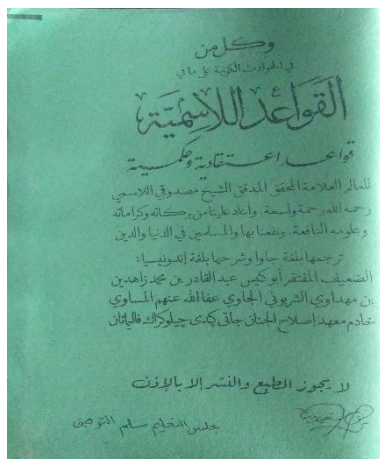 وكل من
في الحوادث الكونية على ما في
القواعد اللاسمية
قواعد اعتقادية وحكمية
للعالم العلامة المحقق المدقق الشيخ مصدوقي اللاسمي
رحمه الله رحمة واسعة. وأعاد علينا من بركاته وكراماته
وعلومه النافعة. ونفعنا بها والمسلمين في الدنيا والدين
ترجمها بلغة جاوا وشرحها بلغة إندونيسيا؛
الضعيف المفتقر أبو كيس عبد القادر بن محمد زاهد بن
بن مهداوي الشربوني الجاوي عفا الله عنهم المساوي
خادم معهد إصلاح الجنان جاتي
لا يجوز الطبع والنشر إلا بالإذن
مجلس التعليم مسلم